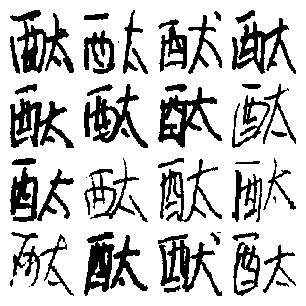 酞酞酞酞
酞酞酞酞
酞酞酞酞
酞酞酞酞